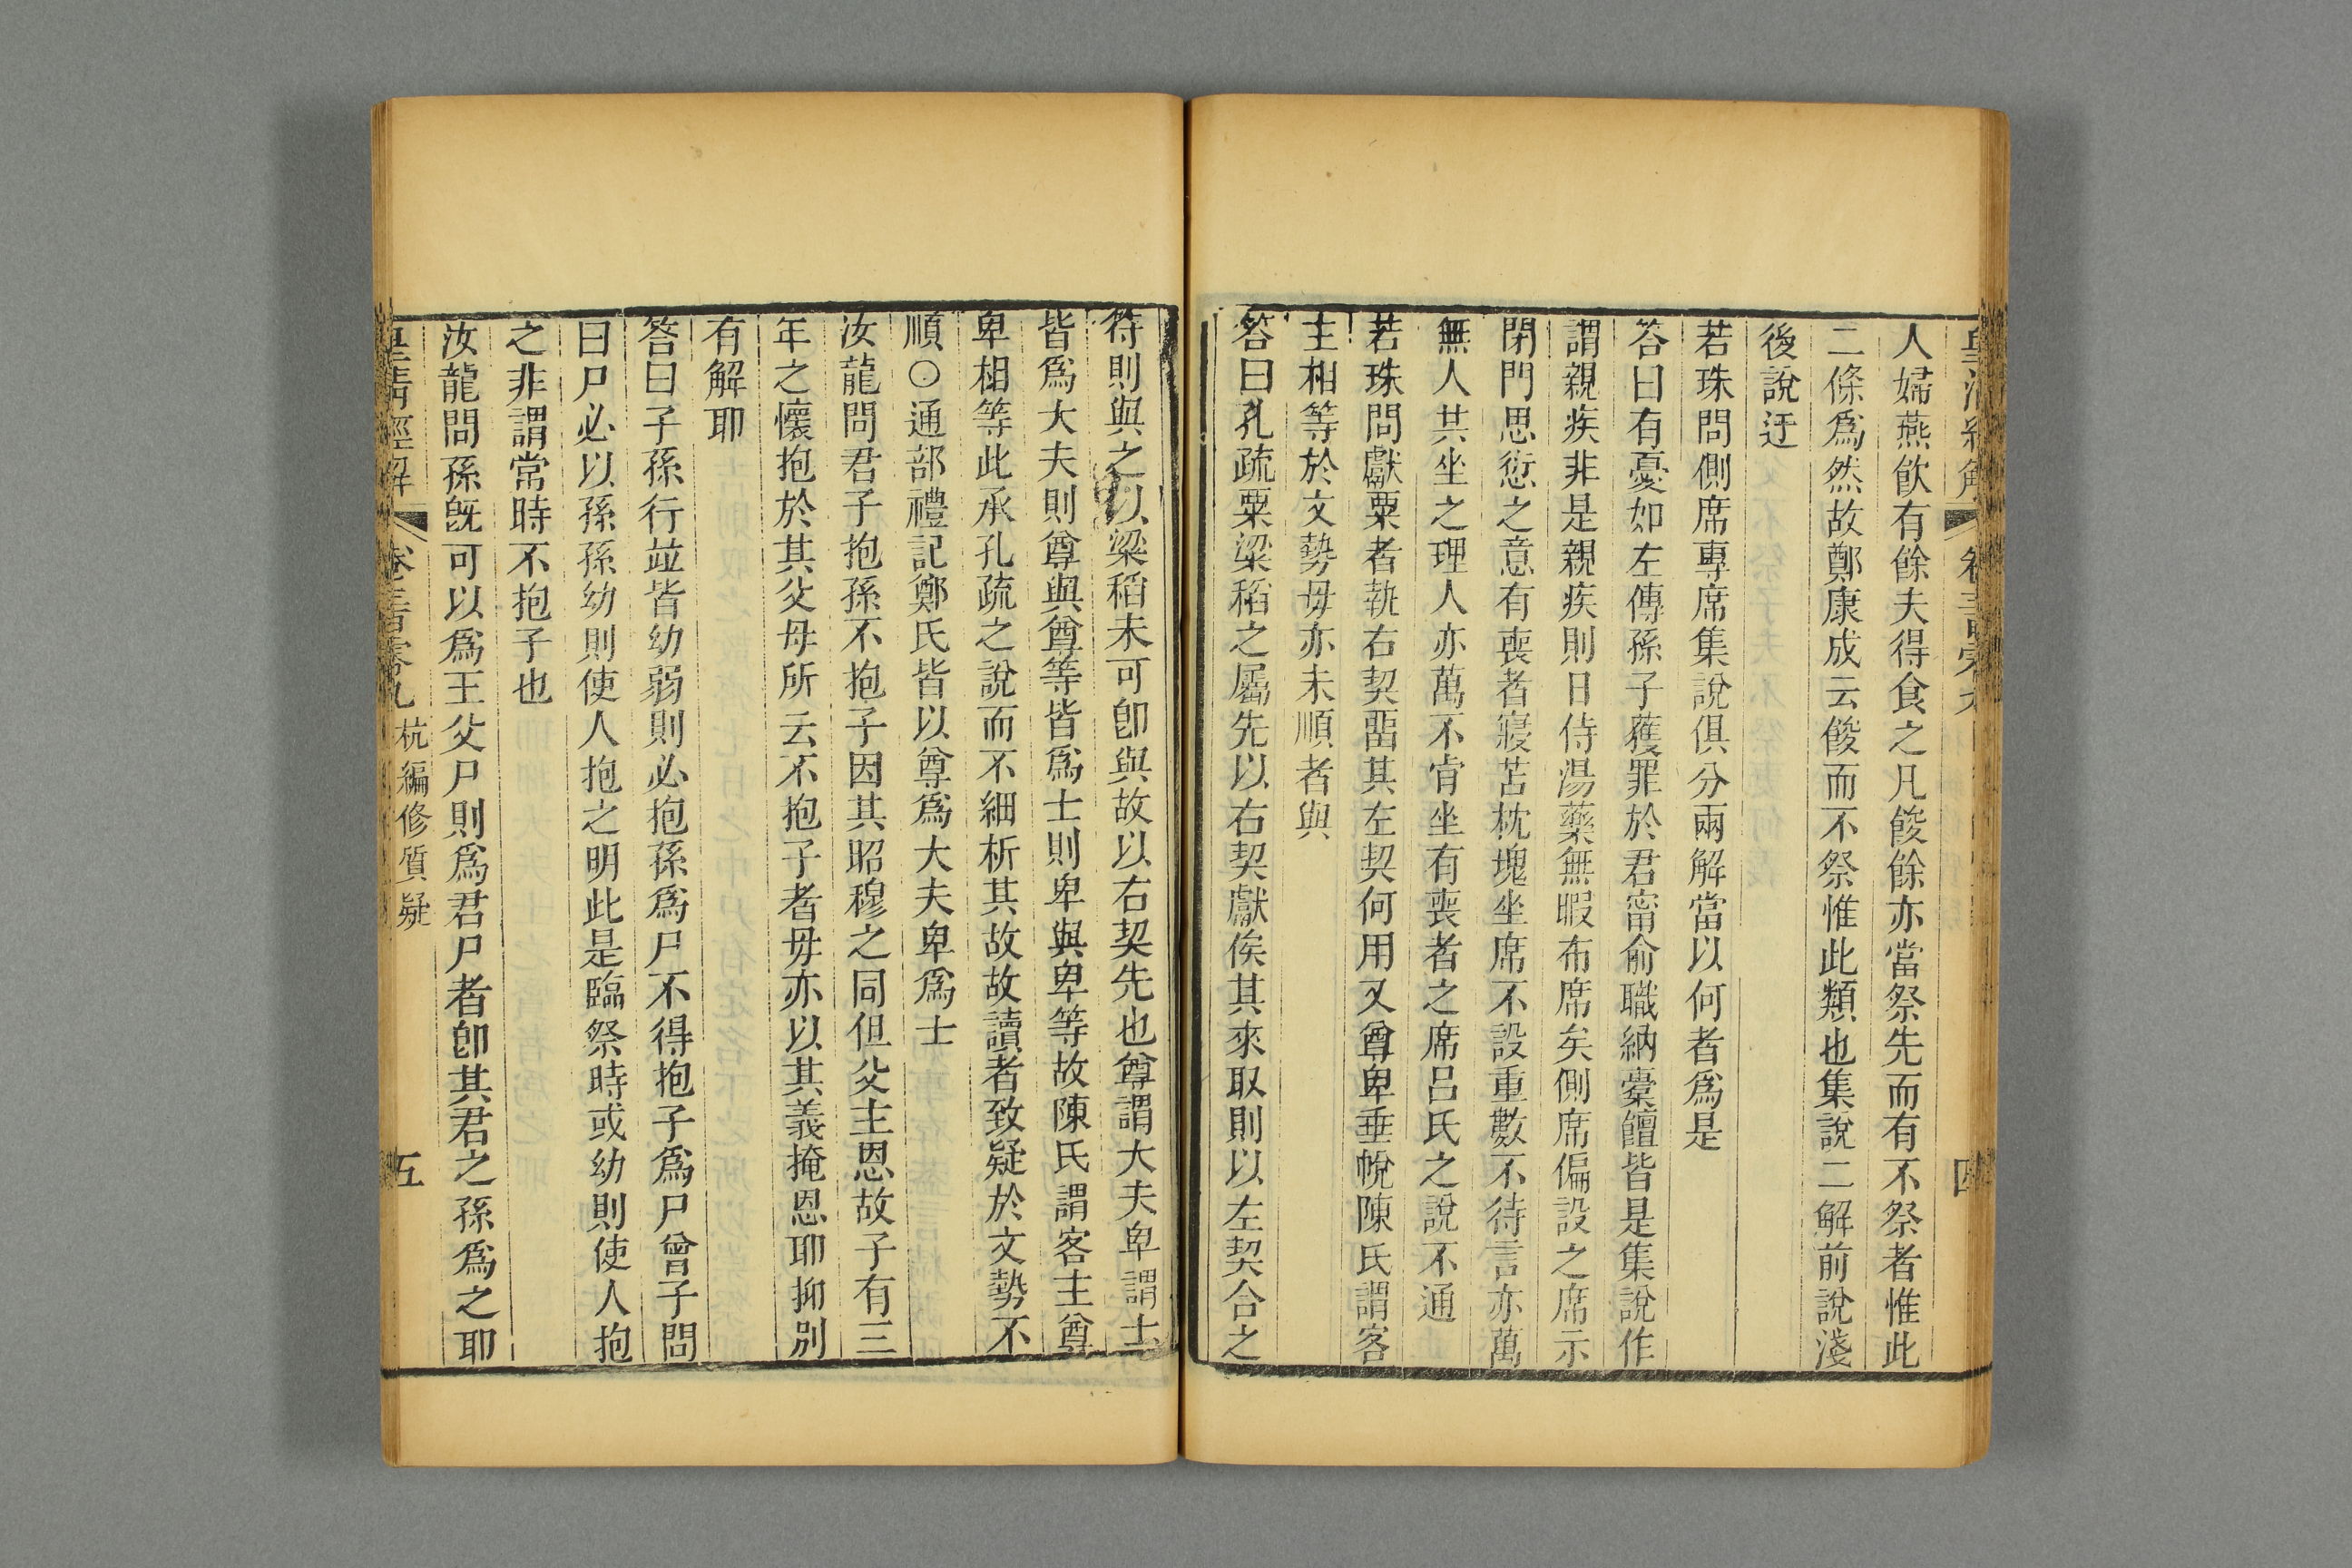 人婦燕飲有餘夫得食之凡餕餘亦當祭先而有不祭者惟此
二條爲然故鄭康成云餕而不祭惟此類也集說二解前說淺
後說迂
若珠問側席專席集說俱分兩解當以何者爲是
答曰有憂如左傳孫子獲罪於君甯俞職納橐饘皆是集說作
謂親疾非是親疾則日侍湯藥無暇布席矣側席偏設之席示
閉門思愆之意有喪者寢苫枕塊坐席不設重數不待言亦萬
無人共坐之理人亦萬不肯坐有喪者之席呂氏之說不通
若珠問獻粟者執右契畱其左契何用又尊卑垂帨陳氏謂客
主相等於文勢毋亦未順者與
答曰孔疏粟梁稻之屬先以右契獻俟其來取則以左契合之
符則與之以粱稻未可卽與故以右契先也尊謂大夫卑謂士
皆爲大夫則尊與尊等皆爲士則卑與卑等故陳氏謂客主尊
卑相等此承孔疏之說而不細析其故故讀者致疑於文勢不
順○通部禮記鄭氏皆以尊爲大夫卑爲士
汝龍問君子抱孫不抱子因其昭穆之同但父主恩故子有三
年之懷抱於其父母所云不抱子者毋亦以其義掩恩耶抑別
有解耶
答曰子孫行竝皆幼弱則必抱孫爲尸不得抱子爲尸曾子問
曰尸必以孫孫幼則使人抱之明此是臨祭時或幼則使人抱
之非謂常時不抱子也
汝龍問孫旣可以爲王父尸則爲君尸者卽其君之孫爲之耶
皇淸經解 杭編修質疑 五